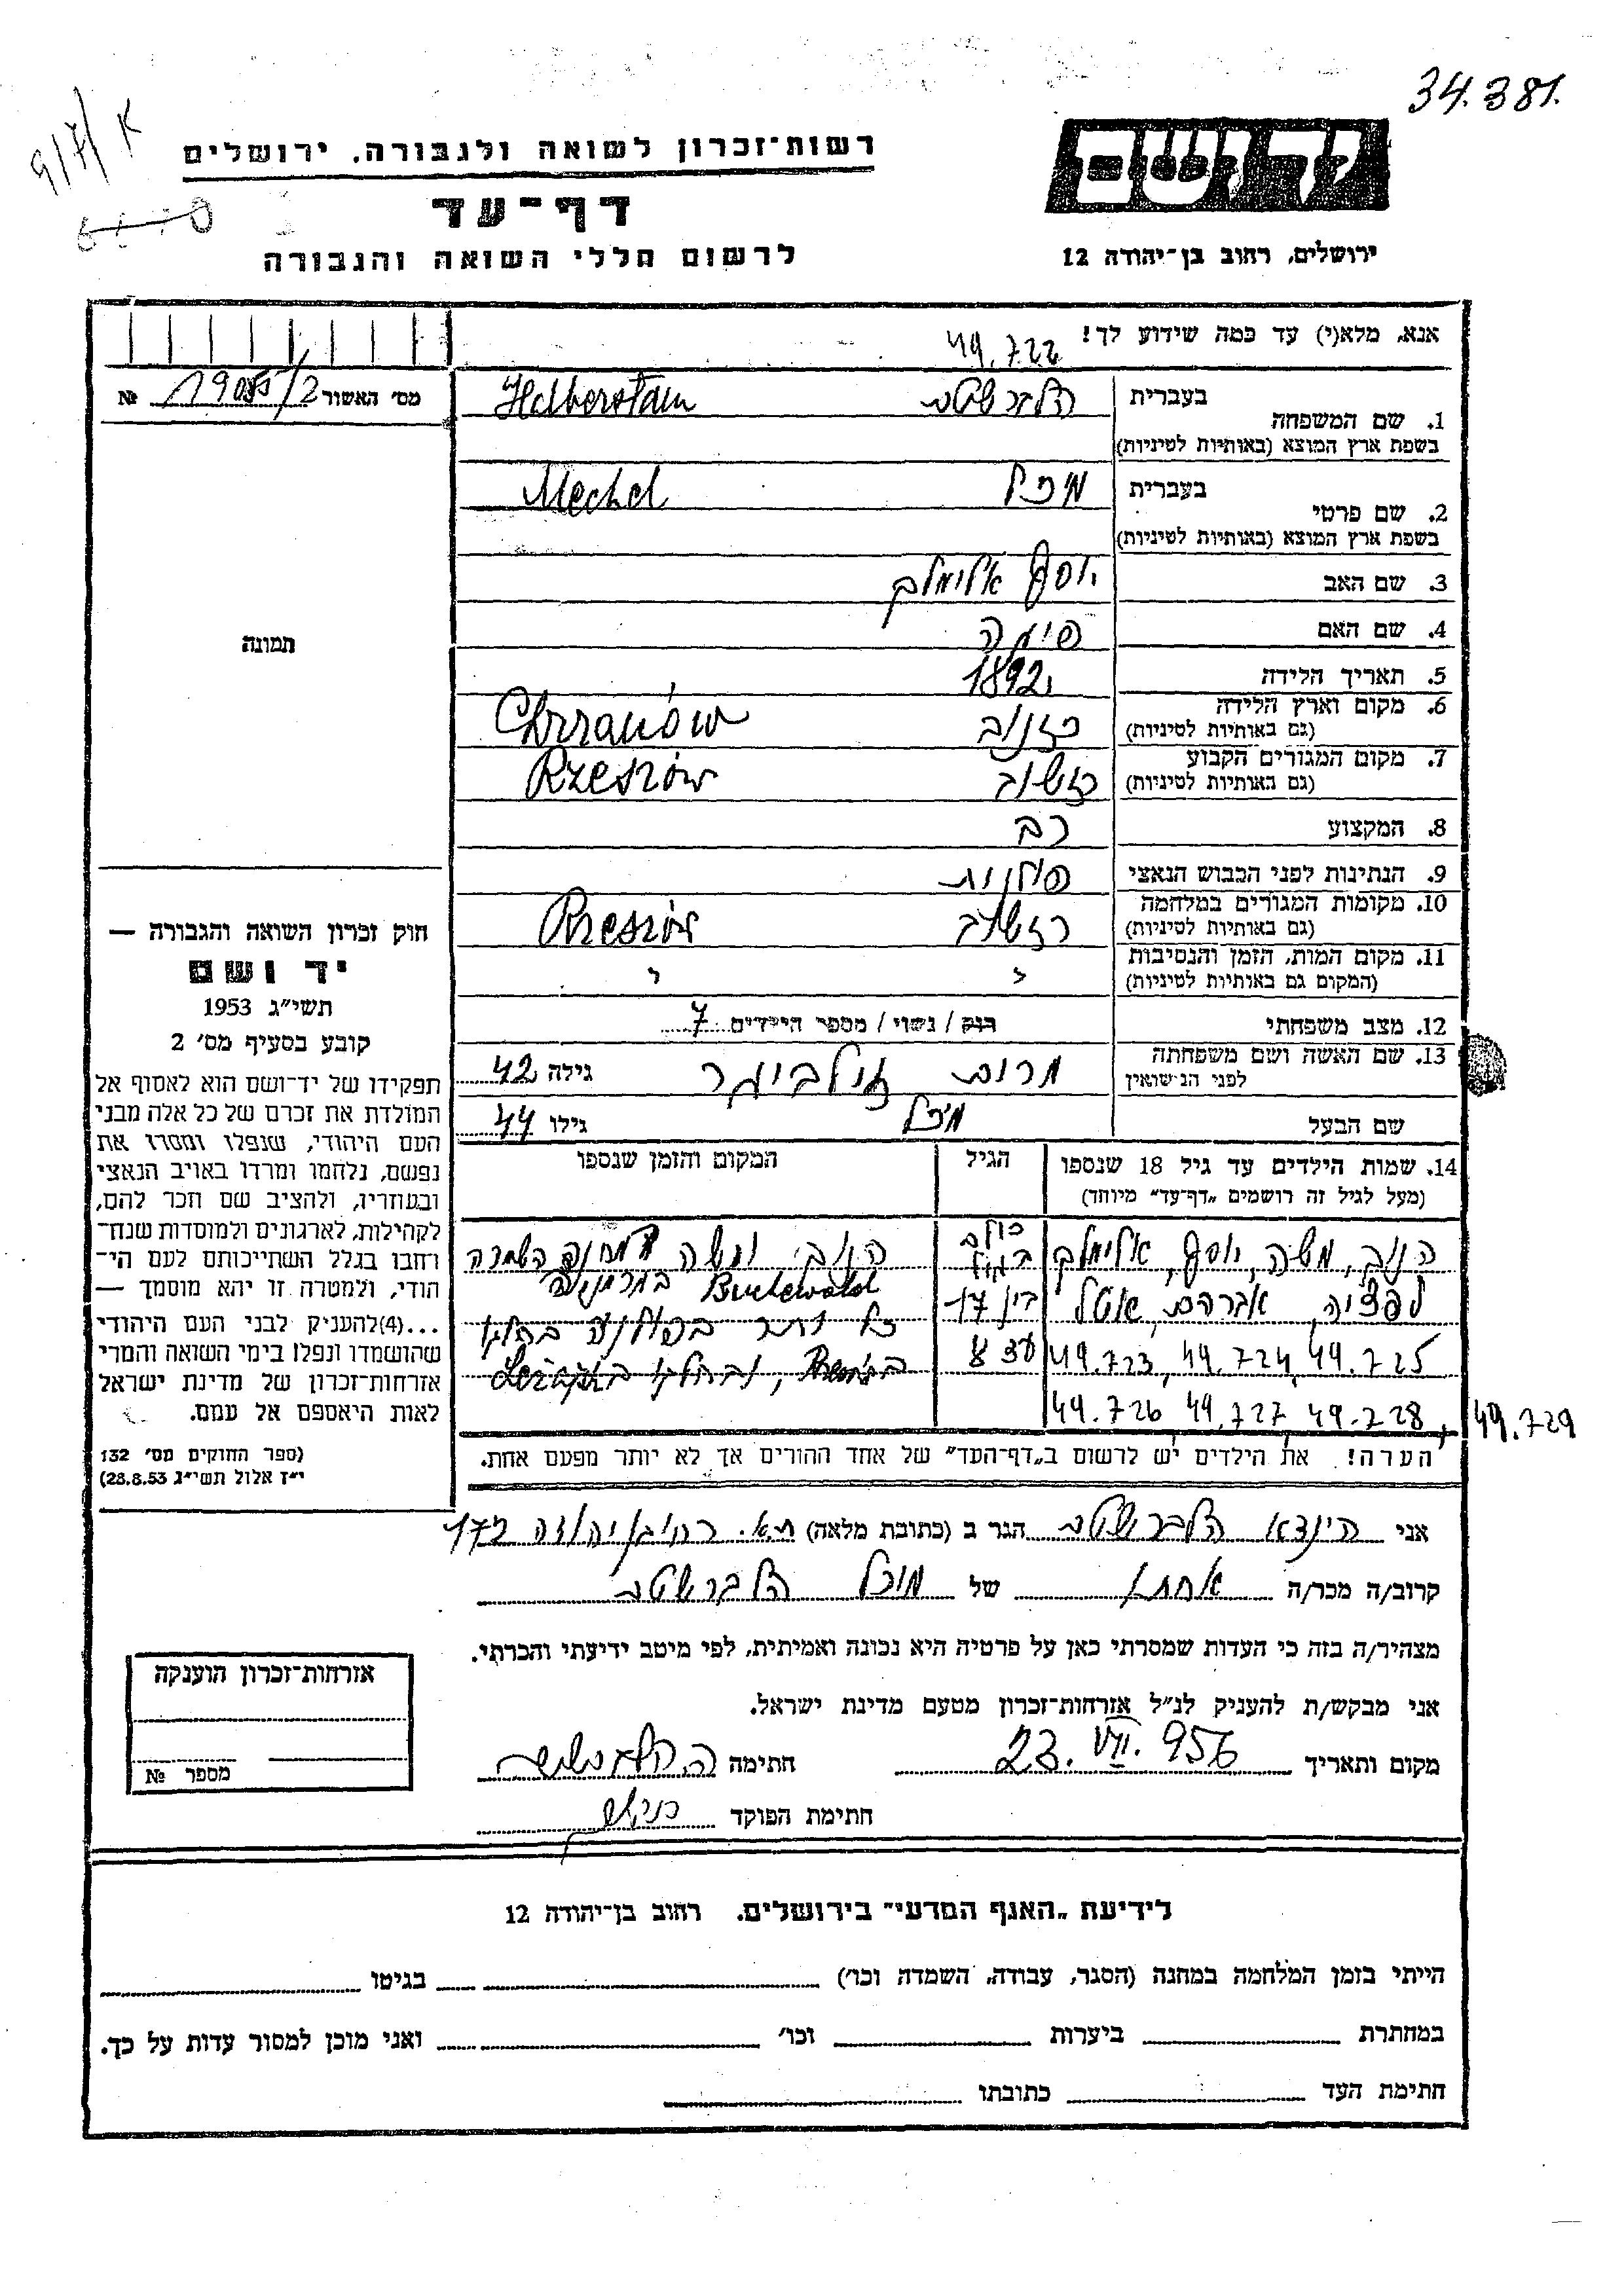 34.381.
רשות־זכרון לשואה ולגבורה, ירושלים
דף־עד
לרשום חללי השואה והגבורה
ירושלים, רחוב בן־יהודה 12
אנא, מלא(י) עד כמה שידוע לך!
49.722
מס׳ האשור № 19055/2
1. שם המשפחה
בעברית הלברשטם Halberstam
בשפת ארץ המוצא (באותיות לטיניות)
2. שם פרטי
בעברית מיכל Mechel
בשפת ארץ המוצא (באותיות לטיניות)
3. שם האב יוסף אלימלך
4. שם האם סימה
5. תאריך הלידה 1892
6. מקום וארץ הלידה
(גם באותיות לטיניות) Chrzanów
7. מקום המגורים הקבוע
(גם באותיות לטיניות) Rzeszów
8. המקצוע רב
9. הנתינות לפני הכבוש הנאצי פולנית
10. מקומות המגורים במלחמה
(גם באותיות לטיניות) רזשוב Rzeszów
11. מקום המות, הזמן והנסיבות
(המקום גם באותיות לטיניות) ? ?
12. מצב משפחתי רוק / נשוי / מספר הילדים 7
13. שם האשה ושם משפחתה
לפני הנישואין מרים זילביגר גילה 42
שם הבעל מיכל גילו 44
14. שמות הילדים עד גיל 18 שנספו
(מעל לגיל זה רושמים „דף־עד״ מיוחד)
הגיל
המקום והזמן שנספו
משה, יוסף, אלימלך
כולם בגיל
Buchenwald בגרמניה
אברהם,
בין 17
עד 8
49.723, 49.724, 49.725
49.726 49.727 49.728, 49.729
הערה! את הילדים יש לרשום ב„דף־העד״ של אחד ההורים אך לא יותר מפעם אחת.
תמונה
חוק זכרון השואה והגבורה —
יד ושם
תשי״ג 1953
קובע בסעיף מס׳ 2
תפקידו של יד־ושם הוא לאסוף אל
המולדת את זכרם של כל אלה מבני
העם היהודי, שנפלו ומסרו את
נפשם, נלחמו ומרדו באויב הנאצי
ובעוזריו, ולהציב שם וזכר להם,
לקהילות, לארגונים ולמוסדות שנח־
רחבו בגלל השתייכותם לעם הי־
הודי, ולמטרה זו יהא מוסמך —
...(4)להעניק לבני העם היהודי
שהושמדו ונפלו בימי השואה והמרי
אזרחות־זכרון של מדינת ישראל
לאות היאספם אל עמם.
(ספר החוקים מס׳ 132
י״ז אלול תשי״ג 28.8.53)
אני הינדא הלברשטם הגר ב (כתובת מלאה) ת.א. בן יהודה 177
קרוב/ה מכר/ה אחת של מיכל הלברשטם
מצהיר/ה בזה כי העדות שמסרתי כאן על פרטיה היא נכונה ואמיתית, לפי מיטב ידיעתי והכרתי.
אני מבקש/ת להעניק לנ״ל אזרחות־זכרון מטעם מדינת ישראל.
מקום ותאריך 23. VII. 956 חתימה ה. הלברשטם
חתימת הפוקד
אזרחות־זכרון הוענקה
מספר №
לידיעת „האגף המדעי״ בירושלים. רחוב בן־יהודה 12
הייתי בזמן המלחמה במחנה (הסגר, עבודה, השמדה וכו׳) בגיטו
במחתרת ביערות וכו׳ ואני מוכן למסור עדות על כך.
חתימת העד כתובתו